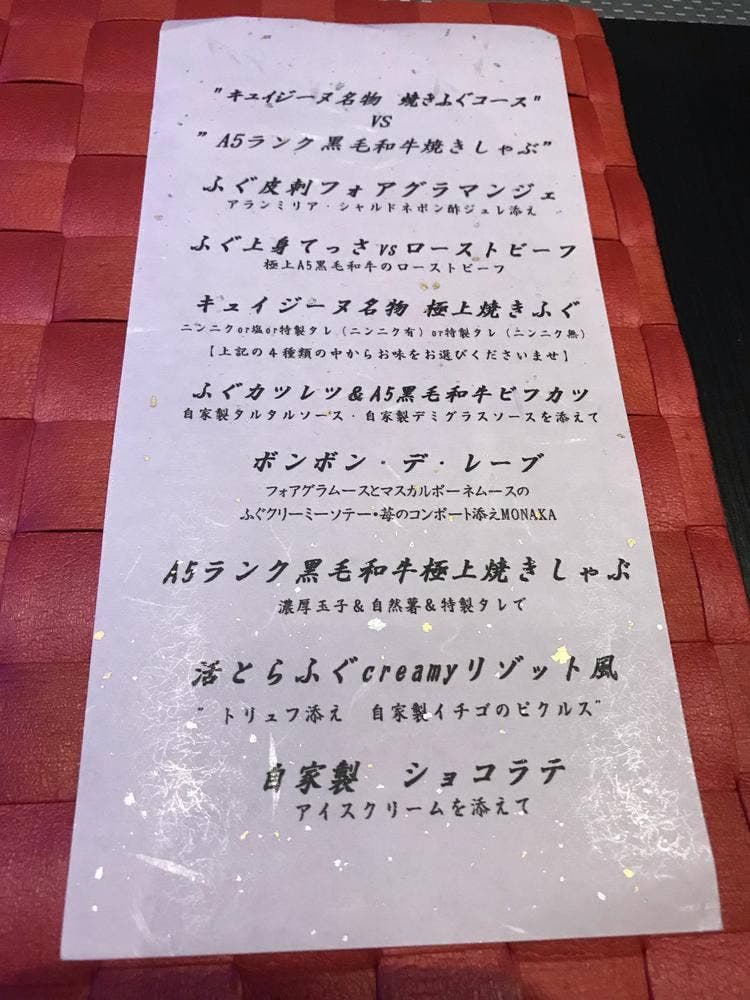 "キュイジーヌ名物　焼きふぐコース"
VS
"A5ランク黒毛和牛焼きしゃぶ"
ふぐ皮刺フォアグラマンジェ
アランミリア・シャルドネポン酢ジュレ添え
ふぐ上身てっさvsローストビーフ
極上A5黒毛和牛のローストビーフ
キュイジーヌ名物 極上焼きふぐ
ニンニクor塩or特製タレ（ニンニク有）or特製タレ（ニンニク無）
【上記の４種類の中からお味をお選びくださいませ】
ふぐカツレツ&A5黒毛和牛ビフカツ
自家製タルタルソース・自家製デミグラスソースを添えて
ボンボン・デ・レーブ
フォアグラムースとマスカルポーネムースの
ふぐクリーミーソテー・苺のコンポート添えMONAKA
A5ランク黒毛和牛極上焼きしゃぶ
濃厚玉子&自然薯&特製タレで
活とらふぐcreamyリゾット風
"トリュフ添え　自家製イチゴのピクルス"
自家製　ショコラテ
アイスクリームを添えて